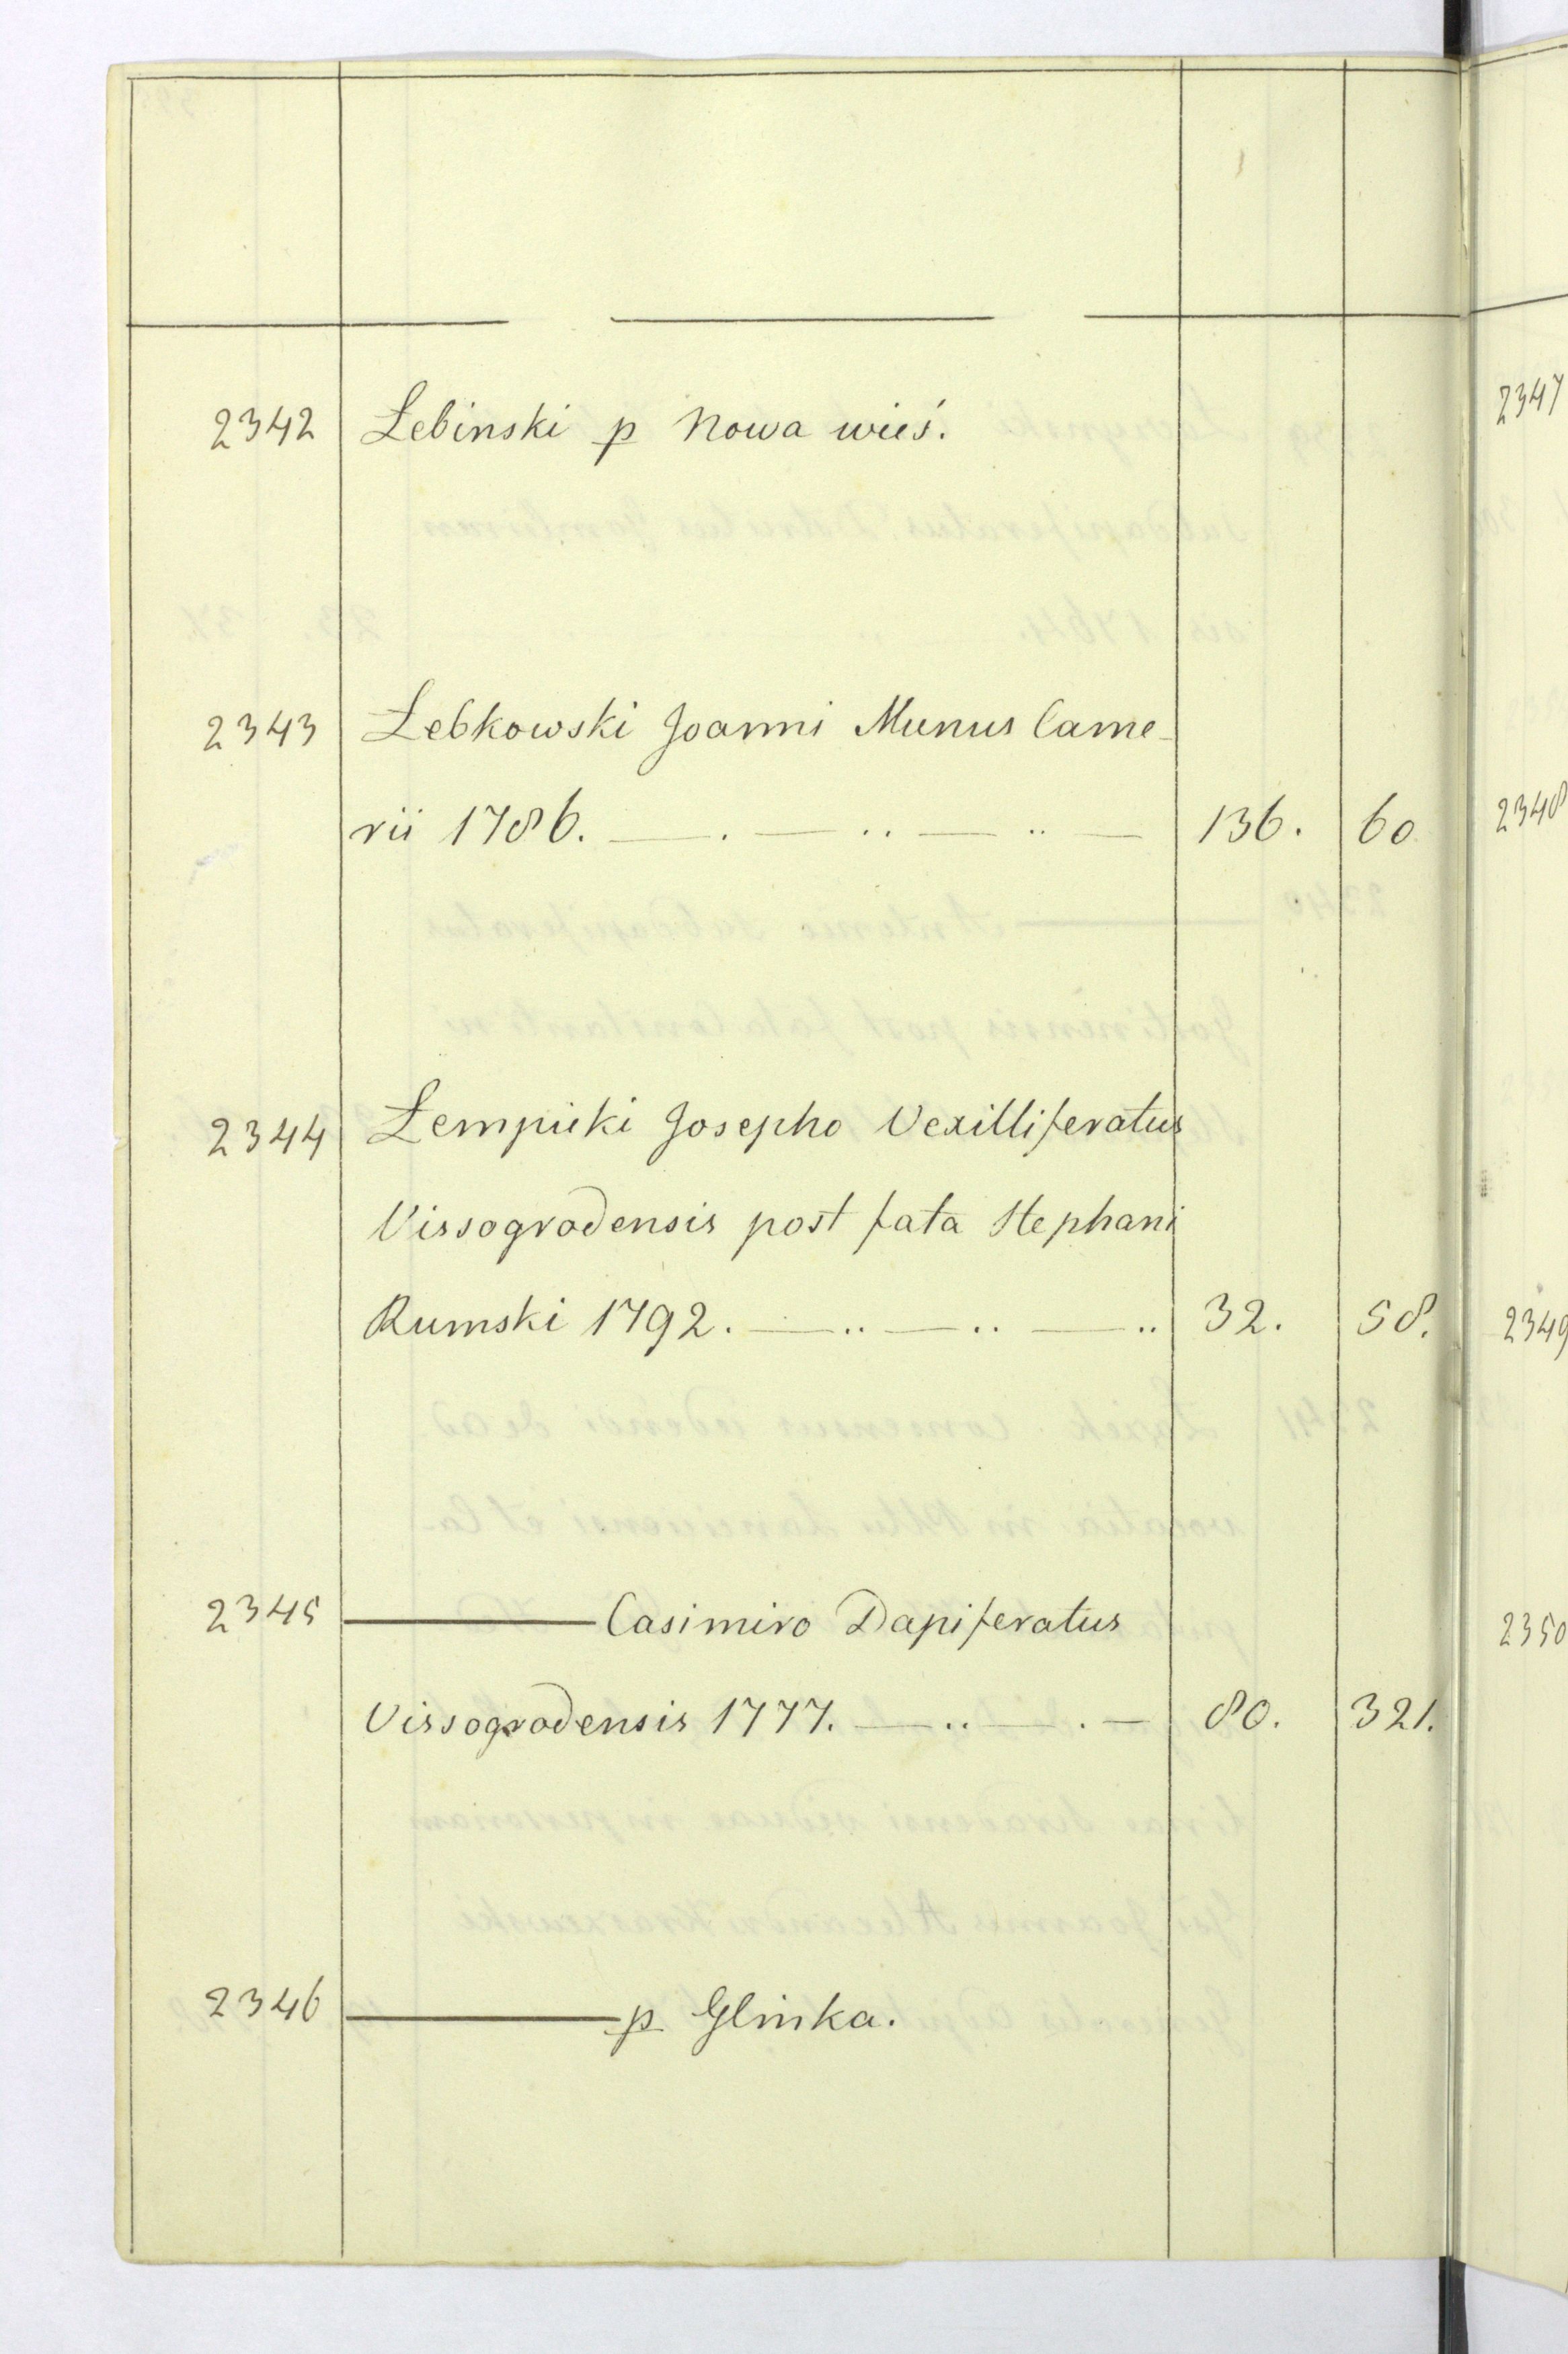 2342 Łebinski p Nowa wieś.
2343 Łebkowski Joanni Munus Came-
rii 1786. 136. 60
2344 Łempicki Josepho Vexilliferatus
Vissogrodensis post fata Stephani
Rumski 1792. 32. 58.
2345 ——— Casimiro Dapiferatus
Vissogrodensis 1777. 80. 321.
2346 ——— p Glinka.
2347
2348
2349
2350